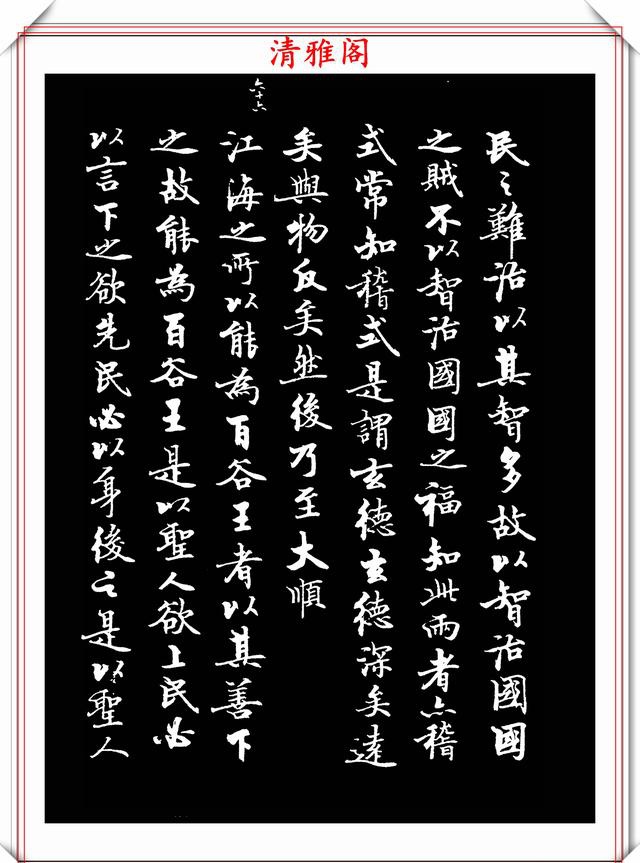 清雅阁
民之難治以其智多故以智治國國
之賊不以智治國國之福知此兩者亦稽
式常知稽式是謂玄德玄德深矣遠
矣與物反矣然後乃至大順
六十六
江海之所以能為百谷王者以其善下
之故能為百谷王是以聖人欲上民必
以言下之欲先民必以身後之是以聖人